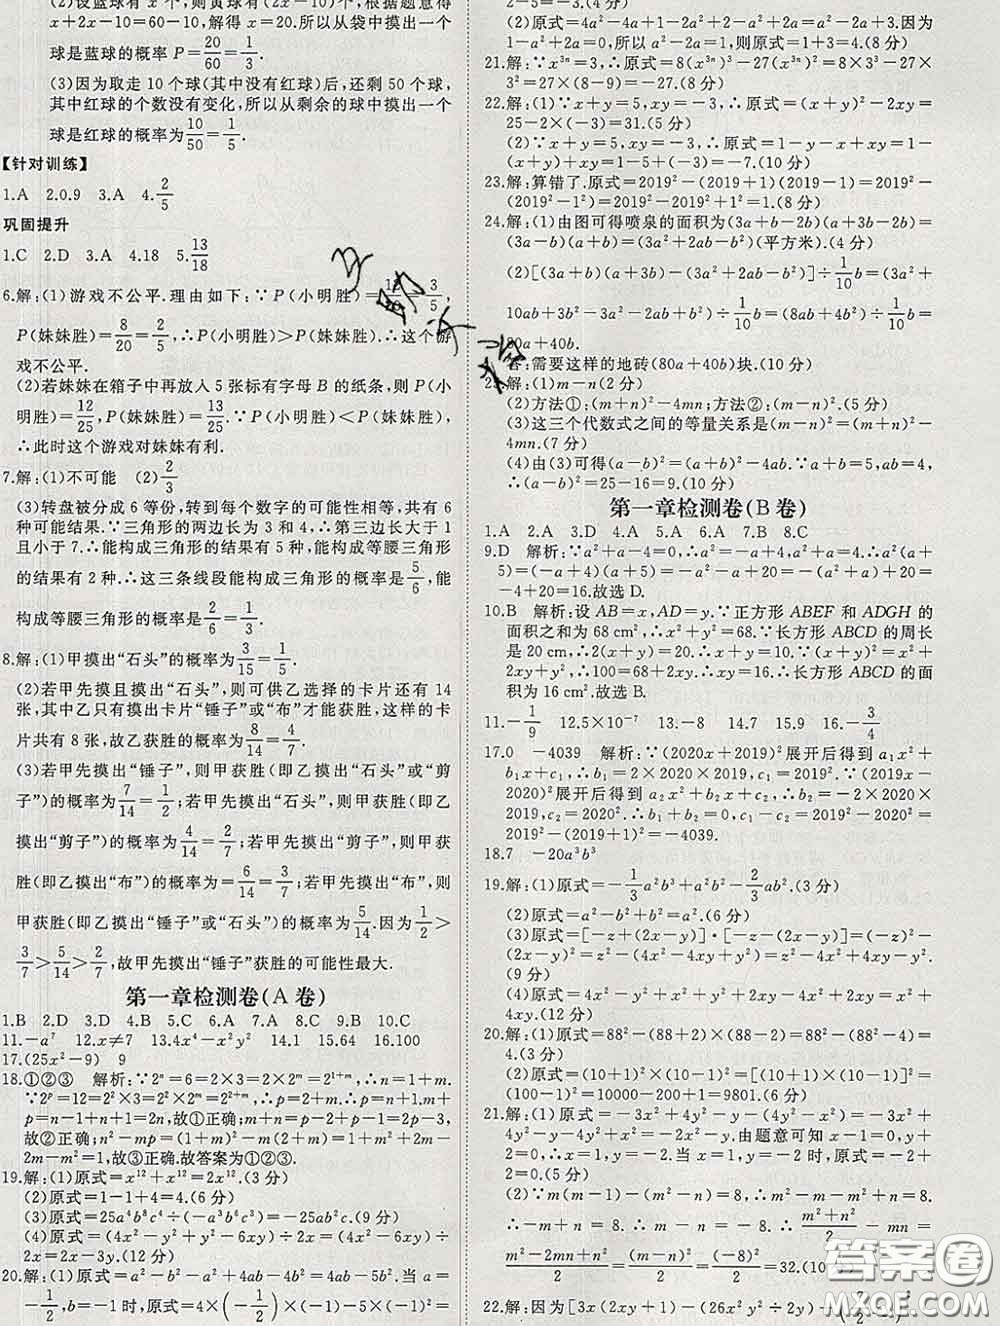 (2)设篮球有 x 个,则黄球有(2x−10)个,根据题意得
x+2x−10=60−10,解得 x=20.所以从袋中摸出一个
球是蓝球的概率 P=20/60=1/3.
(3)因为取走 10 个球(其中没有红球)后,还剩 50 个球,
其中红球的个数没有变化,所以从剩余的球中摸出一个
球是红球的概率为10/50=1/5.
【针对训练】
1.A 2.0.9 3.A 4.2/5
巩固提升
1.C 2.D 3.A 4.18 5.13/18
6.解:(1)游戏不公平.理由如下:∵P(小明胜)=12/20=3/5,
P(妹妹胜)=8/20=2/5,∴P(小明胜)>P(妹妹胜).∴这个游
戏不公平.
(2)若妹妹在箱子中再放入 5 张标有字母 B 的纸条,则 P(小
明胜)=12/25,P(妹妹胜)=13/25.∵P(小明胜)<P(妹妹胜),
∴此时这个游戏对妹妹有利.
7.解:(1)不可能 (2)2/3
(3)转盘被分成 6 等份,转到每个数字的可能性相等,共有 6
种可能结果.∵三角形的两边长为 3 和 4,∴第三边大于 1
且小于 7.∴能构成三角形的结果有 5 种,能构成等腰三角形
的结果有 2 种.∴这三条线段能构成三角形的概率是5/6,能
构成等腰三角形的概率是2/6=1/3.
8.解:(1)甲摸出“石头”的概率为3/15=1/5.
(2)若甲先摸且摸出“石头”,则可供乙选择的卡片还有 14
张,其中乙只有摸出卡片“锤子”或“布”才能获胜,这样的卡
片共有 8 张,故乙获胜的概率为8/14=4/7.
(3)若甲先摸出“锤子”,则甲获胜(即乙摸出“石头”或“剪
子”)的概率为7/14=1/2;若甲先摸出“石头”,则甲获胜(即乙
摸出“剪子”)的概率为4/14=2/7;若甲先摸出“剪子”,则甲获
胜(即乙摸出“布”)的概率为6/14=3/7;若甲先摸出“布”,则
甲获胜(即乙摸出“锤子”或“石头”)的概率为5/14.因为1/2>
3/7>5/14>2/7,故甲先摸出“锤子”获胜的可能性最大.
第一章检测卷(A 卷)
1.B 2.D 3.D 4.B 5.C 6.A 7.A 8.C 9.B 10.C
11.−a⁷ 12.x≠7 13.4x⁴−x²y² 14.1 15.64 16.100
17.(25x²−9) 9
18.①②③ 解析:∵2ⁿ=6=2×3=2×2ᵐ=2¹⁺ᵐ,∴n=1+m.
∵2ᵖ=12=2²×3=2²×2ᵐ=2²⁺ᵐ,∴p=2+m.∴p=n+1.m+
p=n−1+n+1=2n,故①正确;m+n=p−2+p−1=2p−3,
故②正确;n²−mp=(1+m)²−m(2+m)=1+m²+2m−
2m−m²=1,故③正确.故答案为①②③.
19.解:(1)原式=x¹²+x¹²=2x¹².(3 分)
(2)原式=1−1+4=4.(6 分)
(3)原式=25a⁴b⁸c⁴÷(−a³b⁶c³)=−25ab²c.(9 分)
(4)原式=(4x²−y²+y²−6xy)÷2x=(4x²−6xy)÷
2x=2x−3y.(12 分)
20.解:(1)原式=a²−b²−a²+4ab−4b²=4ab−5b².当 a=
−1/2,b=−1 时,原式=4×(−1/2)×(−1)−5×(−1)²=
2−5=−3.(4 分)
(2)原式=4a²−4a+1−2a²+2=2a²−4a+3.因为
1−a²+2a=0,所以 a²−2a=1,则原式=1+3=4.(8 分)
21.解:∵x³ⁿ=3,∴原式=8(x³ⁿ)³−27(x³ⁿ)²=8×3³−27×
3²=27×(8−9)=−27.(8 分)
22.解:(1)∵x+y=5,xy=−3,∴原式=(x+y)²−2xy=
25−2×(−3)=31.(5 分)
(2)∵x+y=5,xy=−3,∴原式=1−y−x+xy=1−
(x+y)+xy=1−5+(−3)=−7.(10 分)
23.解:算错了.原式=2019²−(2019+1)(2019−1)=2019²−
(2019²−1²)=2019²−2019²+1²=1.(8 分)
24.解:(1)由图可得喷泉的面积为(3a+b−2b)(a+3b−2b)=
(3a−b)(a+b)=(3a²+2ab−b²)(平方米).(4 分)
(2)[(3a+b)(a+3b)−(3a²+2ab−b²)]÷1/10b=(3a²+
10ab+3b²−3a²−2ab+b²)÷1/10b=(8ab+4b²)÷1/10b=
80a+40b.
答:需要这样的地砖(80a+40b)块.(10 分)
25.解:(1)m−n(2 分)
(2)方法①:(m+n)²−4mn;方法②:(m−n)².(5 分)
(3)这三个代数式之间的等量关系是(m−n)²=(m+n)²−
4mn.(7 分)
(4)由(3)可得(a−b)²=(a+b)²−4ab.∵a+b=5,ab=4,
∴(a−b)²=25−16=9.(10 分)
第一章检测卷(B 卷)
1.A 2.A 3.D 4.A 5.A 6.A 7.B 8.C
9.D 解析:∵a²+a−4=0,∴a²=−a+4,a²+a=4.∴(a²−
5)=(−a+4)(a+5)=−a²−a+20=−(a²+a)+20=
−4+20=16.故选 D.
10.B 解析:设 AB=x,AD=y.∵正方形 ABEF 和 ADGH 的
面积之和为 68 cm²,∴x²+y²=68.∵长方形 ABCD 的周长
是 20 cm,∴2(x+y)=20.∴x+y=10.∵(x+y)²=x²+
2xy+y²,∴100=68+2xy.∴xy=16.∴长方形 ABCD 的面
积为 16 cm².故选 B.
11.−1/9 12.5×10⁻⁷ 13.−8 14.7 15.9 16.−3/4
17.0 −4039 解析:∵(2020x+2019)²展开后得到 a₁x²+
b₁x+c₁,∴b₁=2×2020×2019,c₁=2019².∵(2019x−
2020)²展开后得到 a₂x²+b₂x+c₂,∴b₂=−2×2020×
2019,c₂=2020².∴b₁+b₂=0,c₁−c₂=2019²−2020²=
(2019+2020)×(2019−2020)=−4039.
18.7 −20a³b³
19.解:(1)原式=−1/3a²b³+a²b²−2/3ab².(3 分)
(2)原式=a²−b²+b²=a².(6 分)
(3)原式=[−z+(2x−y)]·[−z−(2x−y)]=(−z)²−
(2x−y)²=z²−(4x²−4xy+y²)=z²−4x²+4xy−y².
(9 分)
(4)原式=4x²+4xy+y²+x²+2xy−4x²−4xy=x²+y²+
2xy.(12 分)
20.解:(1)原式=88²−(88+2)×(88−2)=88²−(88²−4)=
4.(3 分)
(2)原式=(10+1)²×(10−1)²=[(10+1)×(10−1)]²=
(100−1)²=10000−200+1=9801.(6 分)
21.解:(1)原式=−3x²+4y²−y−(4y−x²)=−3x²+
4y²−4y−y+x²=−2x²+4y²−5y.由题意可知 x−1=0,
y+2=0.(5 分)
(2)∵m(m−1)−(m²−n)=8,∴m²−m−m²+n=8.
∴−m+n=8.∴m−n=−8.∴(m²+n²)/2−mn=
(m²−2mn+n²)/2=(m−n)²/2=(−8)²/2=32.(10 分)
22.解:因为[3x(2xy+1)−(26x²y²÷2y)
答案圈
MXQE.COM